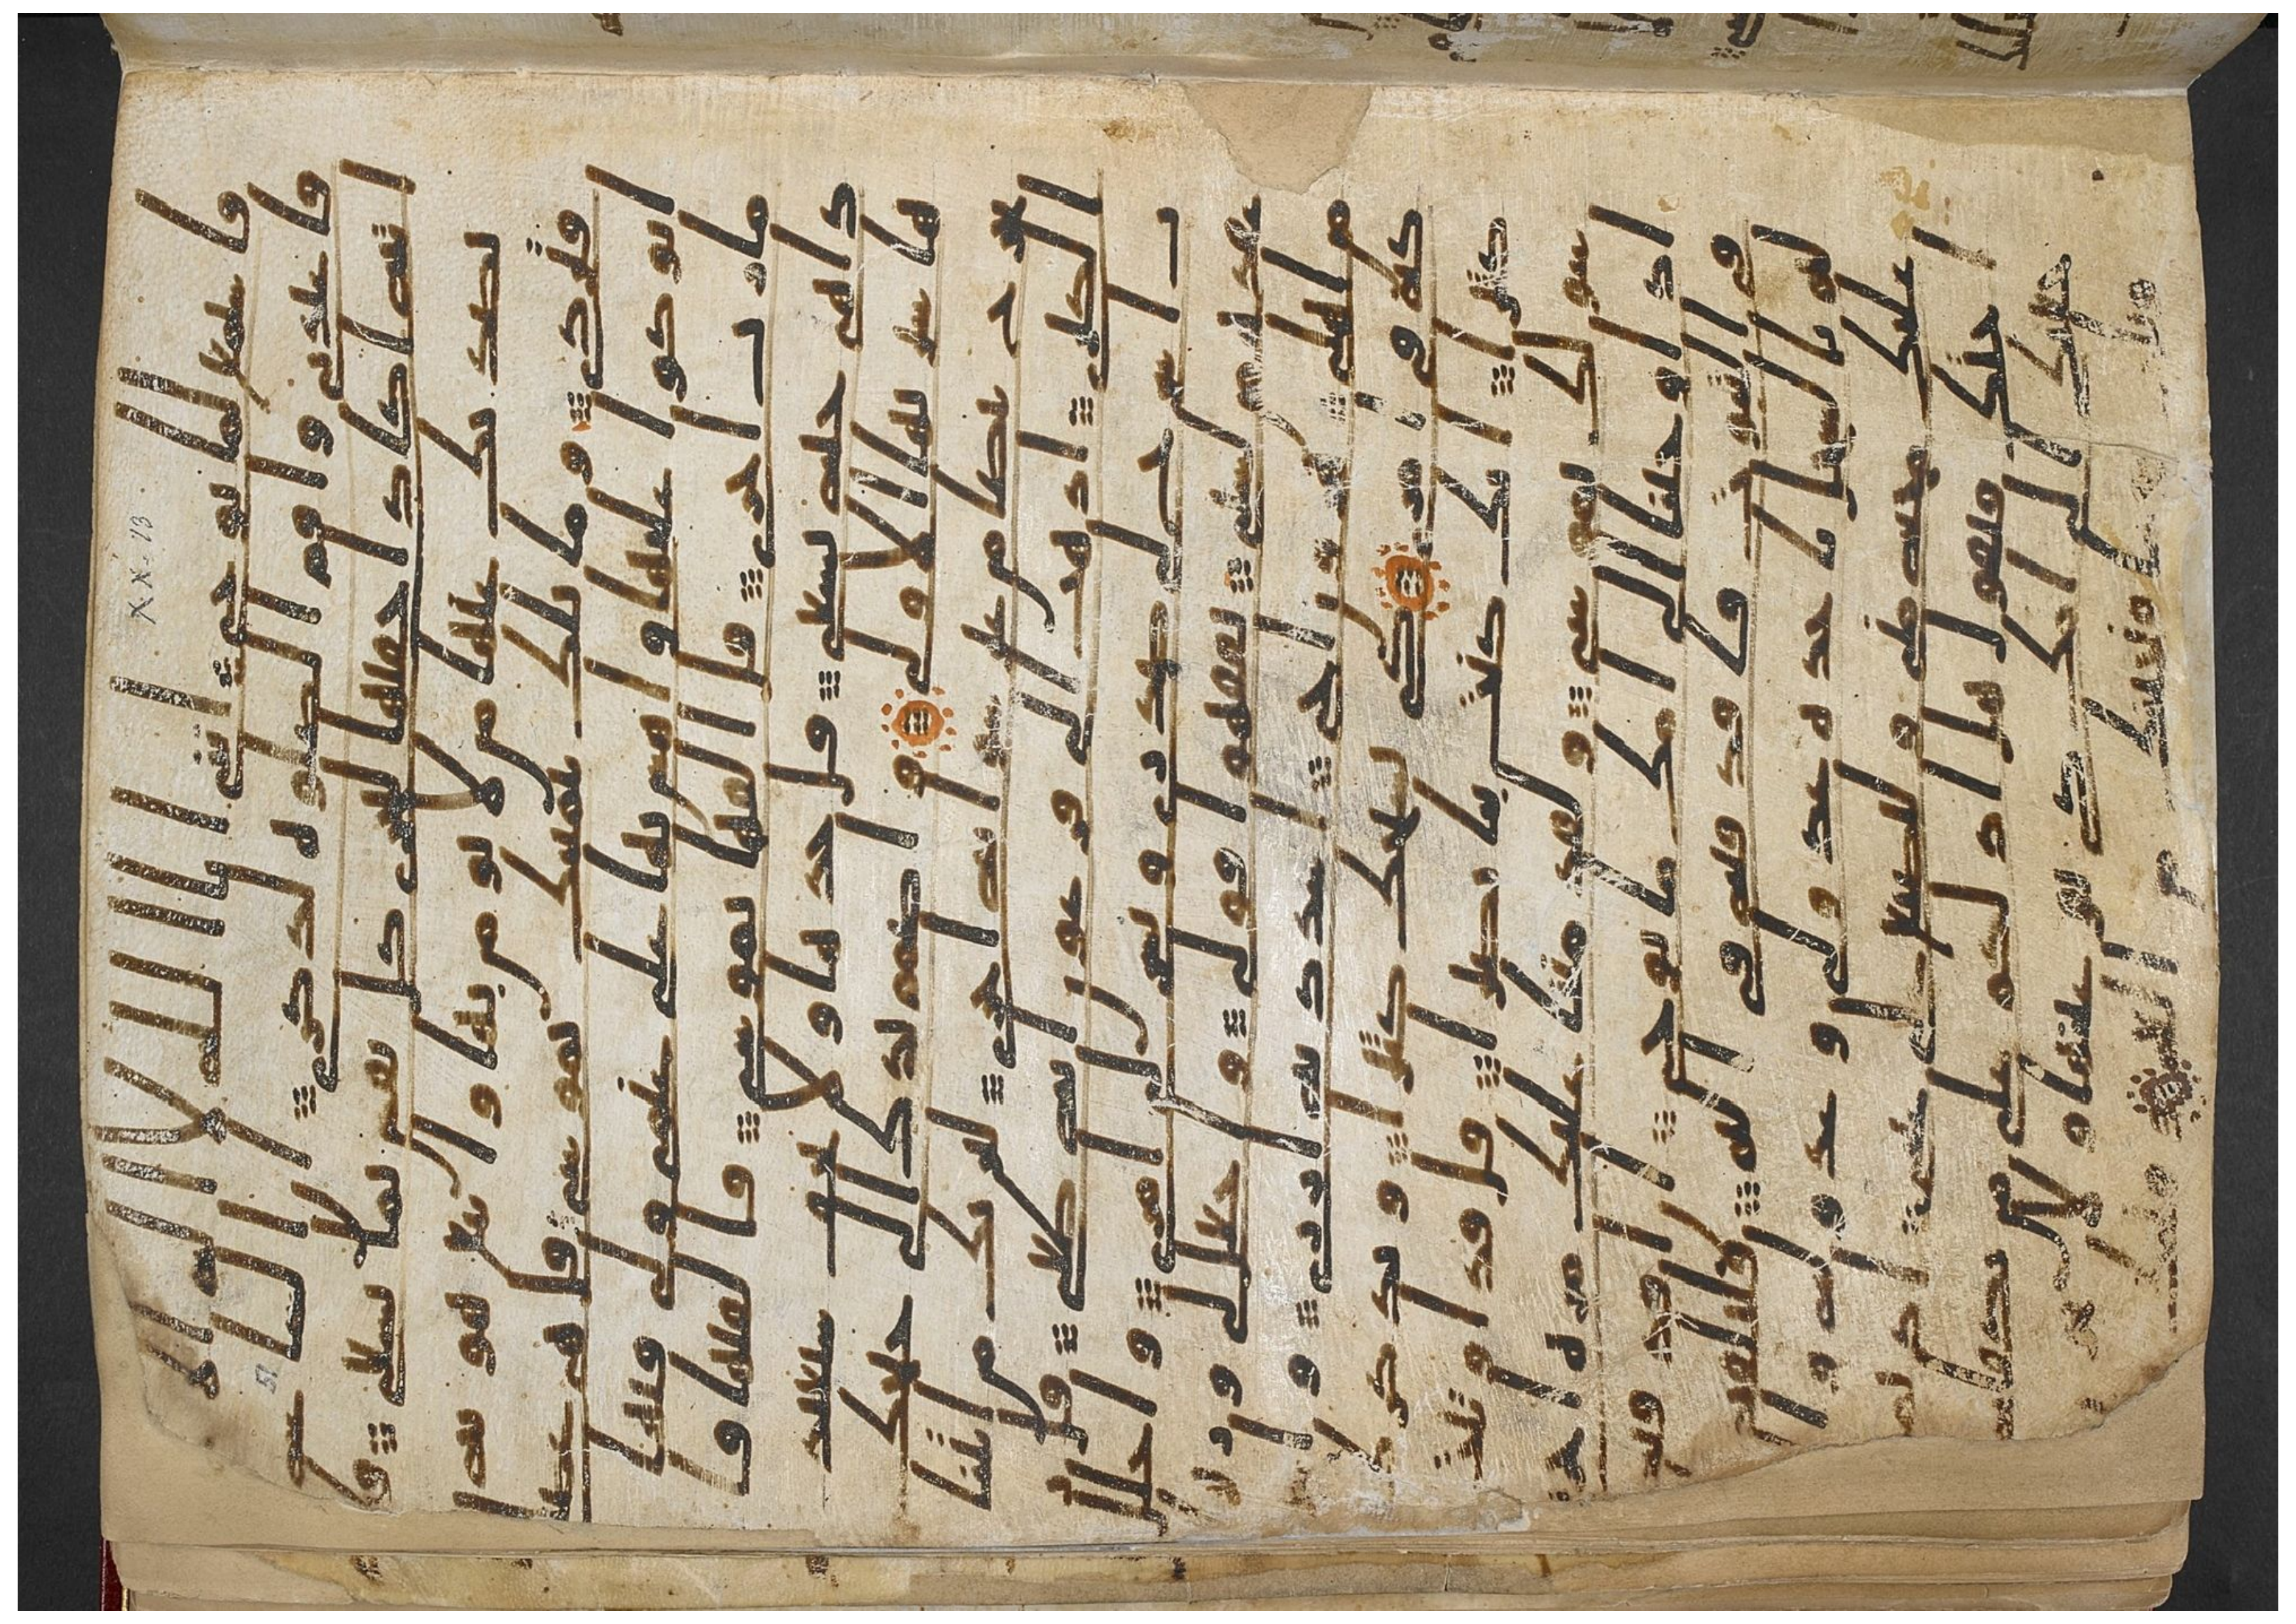 فاستمع لما يوحى انني انا الله لا اله الا انا
فاعبدني واقم الصلوه لذكري ان الساعه
اتيه اكاد اخفيها لتجزى كل نفس بما تسعى فلا
يصدنك عنها من لا يومن بها واتبع هويه
فتردى وما تلك بيمينك يموسى قال هي عصاي
اتوكوا عليها واهش بها على غنمي ولي فيها
مارب اخرى قال القها يموسى فالقيها فا
ذا هي حيه تسعى قال خذها ولا تخف سنعيد
ها سيرتها الاولى واضمم يدك الى جناحك
تخرج بيضا من غير سو ايه اخرى لنريك من ايتنا
الكبرى اذهب الى فرعون انه طغى قال ر
ب اشرح لي صدري ويسر لي امري واحلل
عقده من لسني يفقهوا قولي واجعل لي وزيرا
من اهلي هرون اخي اشدد به ازري وا
شركه في امري كي نسبحك كثيرا ونذكرك
كثيرا انك كنت بنا بصيرا قال قد اوتيت
سولك يموسى ولقد مننا عليك مره اخرى
اذ اوحينا الى امك ما يوحى ان اقذفيه
في التبوت فاقذفيه في اليم فليلقه ا
ليم بالساحل ياخذه عدو لي وعدو له والقيت
عليك محبه مني ولتصنع على عيني اذ تمشي
اختك فتقول هل ادلكم على من يكفله
فرجعنك الى امك كي تقر عينها ولا تحزن
وقتلت نفسا فنجينك من الغم وفتنك